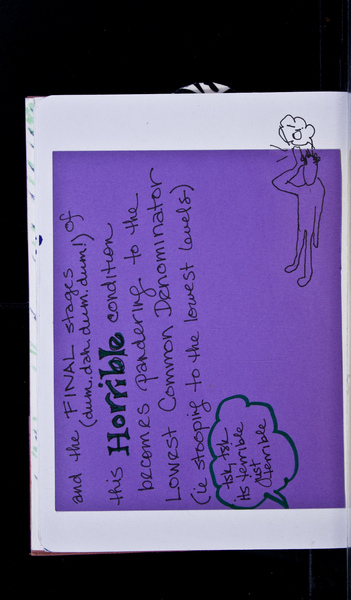 and the FINAL stages of
(dum.dah.dum.dum!)
this Horrible condition
becomes pandering to the
Lowest Common Denominator
(ie stooping to the lowest levels)
Tsk, tsk
its terrible
just
terrible